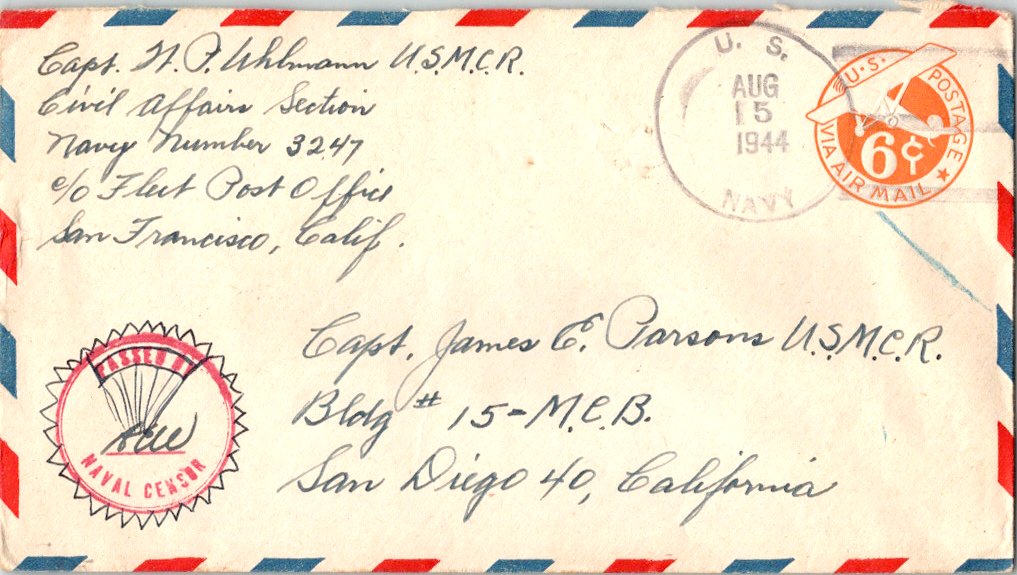 Capt. H. P. Uhlmann U.S.M.C.R.
Civil Affairs Section
Navy Number 3247
c/o Fleet Post Office
San Francisco, Calif.
U. S.
AUG
15
1944
NAVY
U.S. POSTAGE
6¢
VIA AIR MAIL
Capt. James E. Parsons U.S.M.C.R.
Bldg # 15-M.C.B.
San Diego 40, California
PASSED BY
NAVAL CENSOR